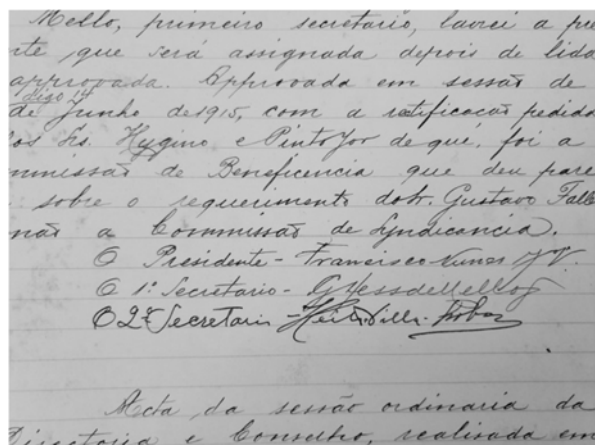 Mello, primeiro secretario, lavrei a pre
nte que será assignada depois de lida
approvada. Approvada em sessão de
digo 14
de Junho de 1915, com a ratificacaō pedida
os Srs. Hygino e Pinto Jor de que, foi a
mmissaō de Beneficencia que deu pare
sobre o requerimento do Sr. Gustavo
naō a Commissaō de Syndicancia.
O Presidente - Francisco Nunes
O 1º Secretario -
O 2º Secretario - Heitor Villa-Lobos
Acta da sessão ordinaria da
Directoria e Conselho, realizada em